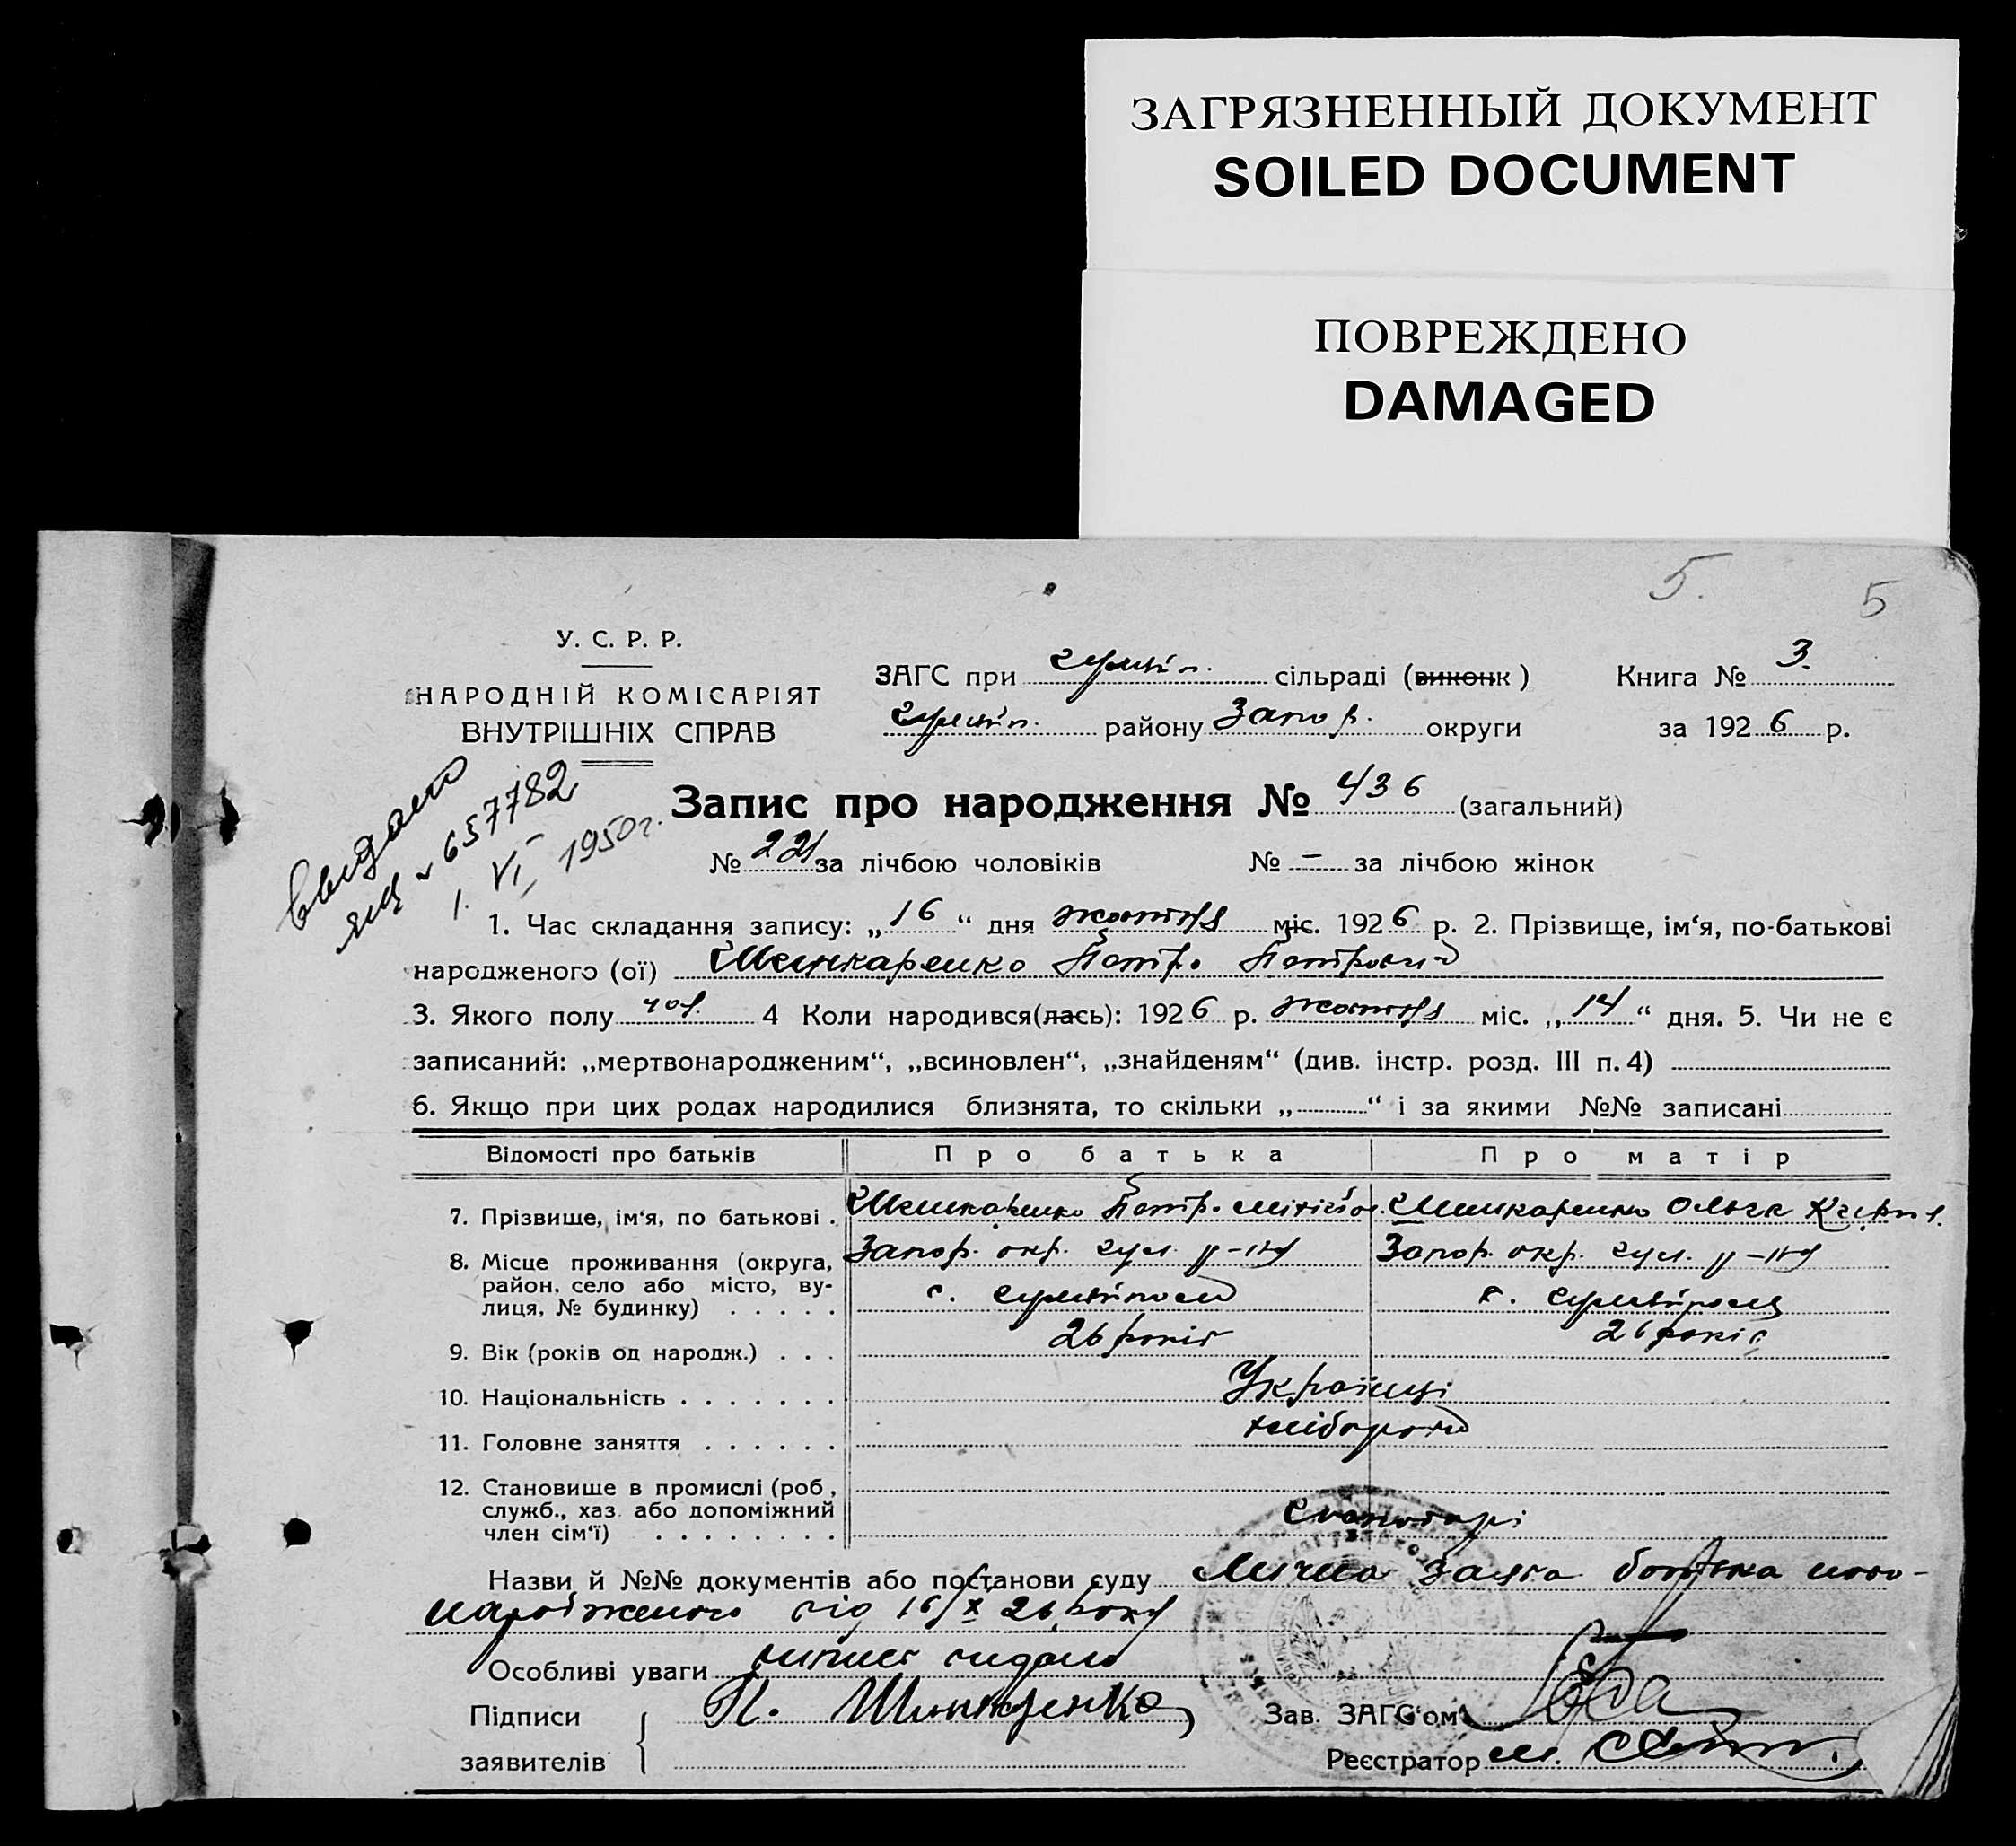 ЗАГРЯЗНЕННЫЙ ДОКУМЕНТ
SOILED DOCUMENT
ПОВРЕЖДЕНО
DAMAGED
5. 5
У. С. Р. Р.
НАРОДНІЙ КОМІСАРІЯТ
ВНУТРІШНІХ СПРАВ
ЗАГС при гуляйп. сільраді (виконк) Книга № 3.
гуляйп. району Запор. округи за 1926 р.
видано
ящ № 657782
1. VI 1950г.
Запис про народження № 436 (загальний)
№ 221 за лічбою чоловіків № – за лічбою жінок
1. Час складання запису: „16“ дня жовтня міс. 1926 р. 2. Прізвище, ім‘я, по-батькові
народженого (ої) Шинкаренко Петро Петрович
3. Якого полу чол. 4 Коли народився(лась): 1926 р. жовтня міс. „14“ дня. 5. Чи не є
записаний: „мертвонародженим“, „всиновлен“, „знайденям“ (див. інстр. розд. III п. 4)
6. Якщо при цих родах народилися близнята, то скільки „ “ і за якими №№ записані
Відомості про батьків Про батька Про матір
7. Прізвище, ім‘я, по батькові . Шинкаренко Петр. Шинкаренко Ольга
8. Місце проживання (округа, Запор. окр. гул. р-ну Запор. окр. гул. р-ну
район, село або місто, ву-
лиця, № будинку) . . . . . с. гуляйполе с. гуляйполе
9. Вік (років од народж.) . . . 26 років 26 років
10. Національність . . . . . . . Українці
11. Головне заняття . . . . . . хлібороби
12. Становище в промислі (роб,
служб., хаз. або допоміжний
член сім‘ї) . . . . . . . .
Назви й №№ документів або постанови суду Лична заява батька ново-
народженого від 16/X 26 року
Особливі уваги випис видано
Підписи П. Шинкаренко Зав. ЗАГС‘ом
заявителів Реєстратор